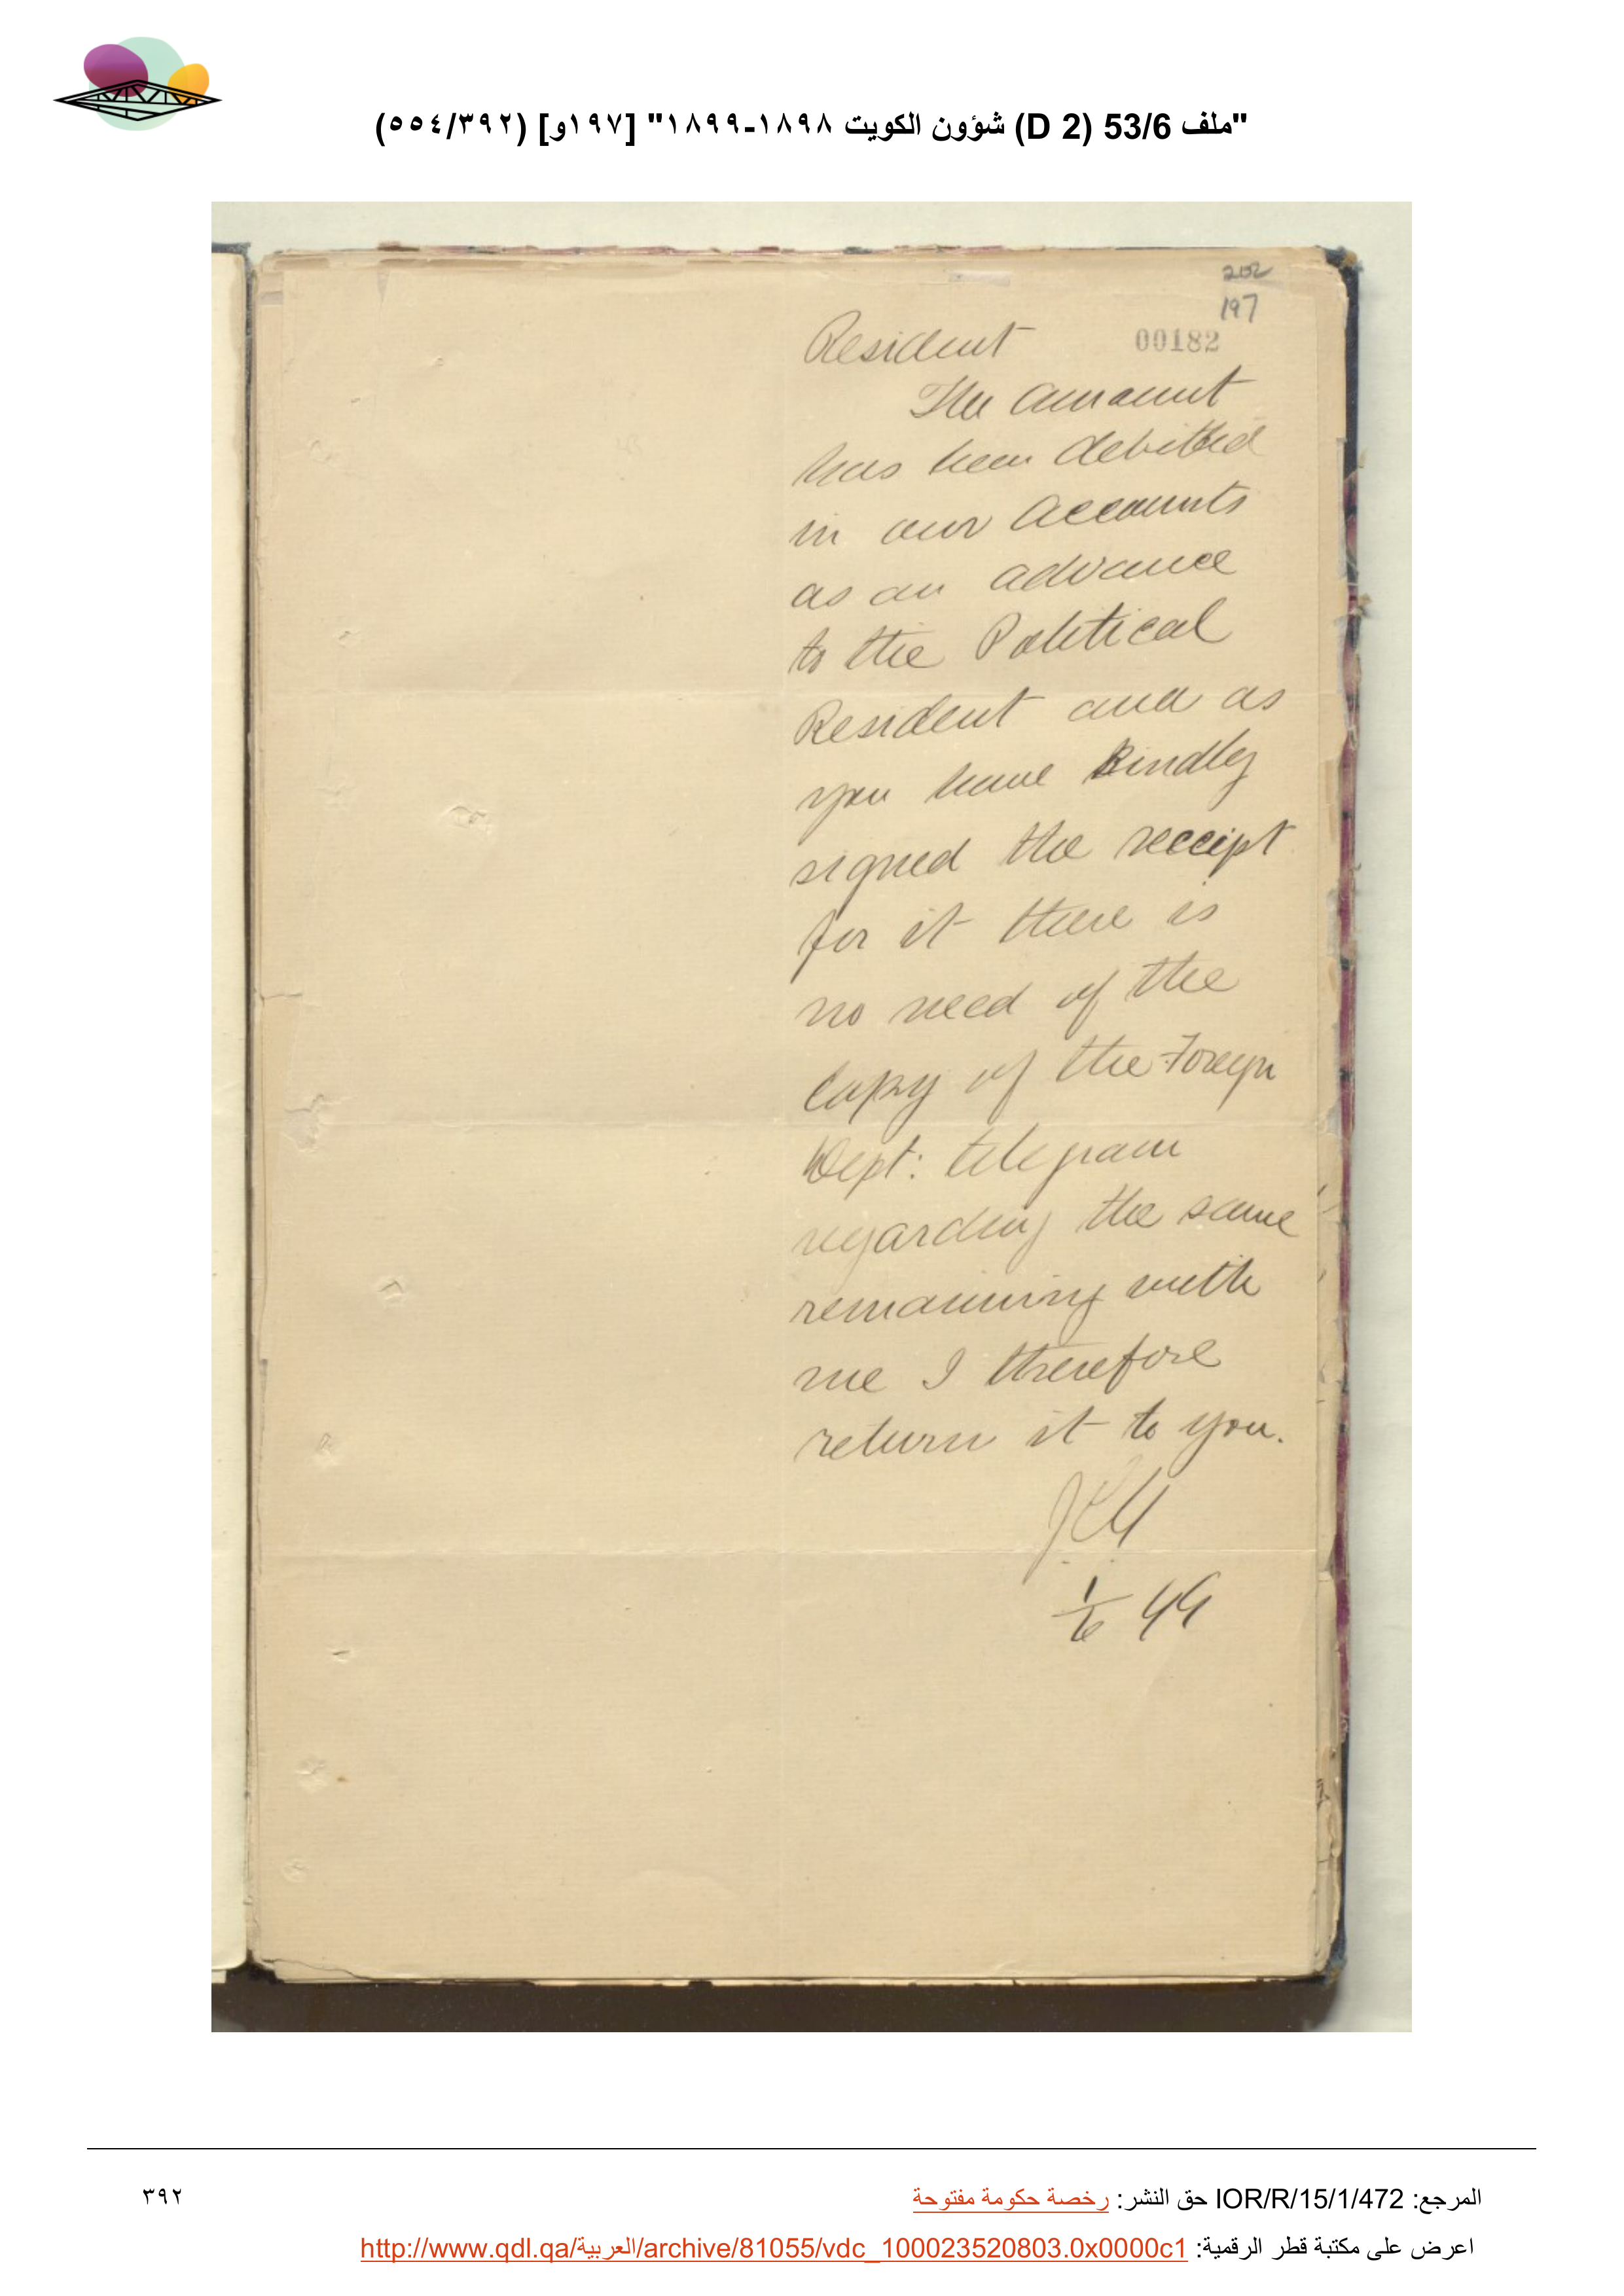 "ملف 53/6 (D 2) شؤون الكويت ١٨٩٨-١٨٩٩" [١٩٧و] (٥٥٤/٣٩٢)
202
197
00182
Resident
The amount
has been debitted
in our accounts
as an advance
to the Political
Resident and as
you have kindly
signed the receipt
for it there is
no need of the
copy of the Foreign
Dept: telegram
regarding the same
remaining with
me I therefore
return it to you.
1/6 99
المرجع: IOR/R/15/1/472 حق النشر: رخصة حكومة مفتوحة
٣٩٢
اعرض على مكتبة قطر الرقمية: http://www.qdl.qa/العربية/archive/81055/vdc_100023520803.0x0000c1